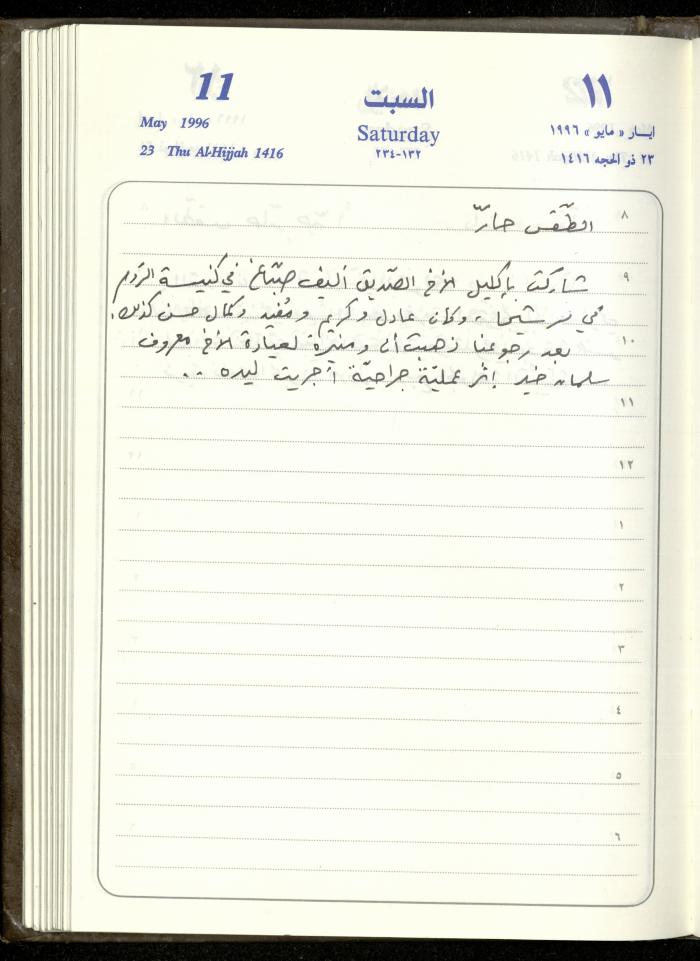 11
May 1996
23 Thu Al-Hijjah 1416
السبت
Saturday
٢٣٤-١٣٢
١١
ايـار « مايو » ١٩٩٦
٢٣ ذو الحجه ١٤١٦
٨ الطّقس حارّ
٩ شاركت بإكليل الأخ الصّديق أليف صبّاغ في كنيسة الرّوم
في ترشيحا، وكان عادل وكريم ومفيد وكمال حسن كذلك.
١٠ بعد رجوعنا ذهبت أنا ومنيرة لعيادة الأخ معروف
سلمان خير إثر عمليّة جراحيّة أجريت ليده ..
١١
١٢
١
٢
٣
٤
٥
٦